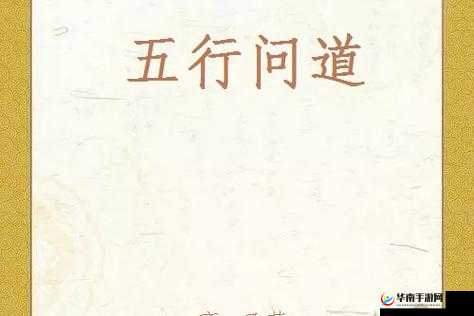 五行问道
华南手游网